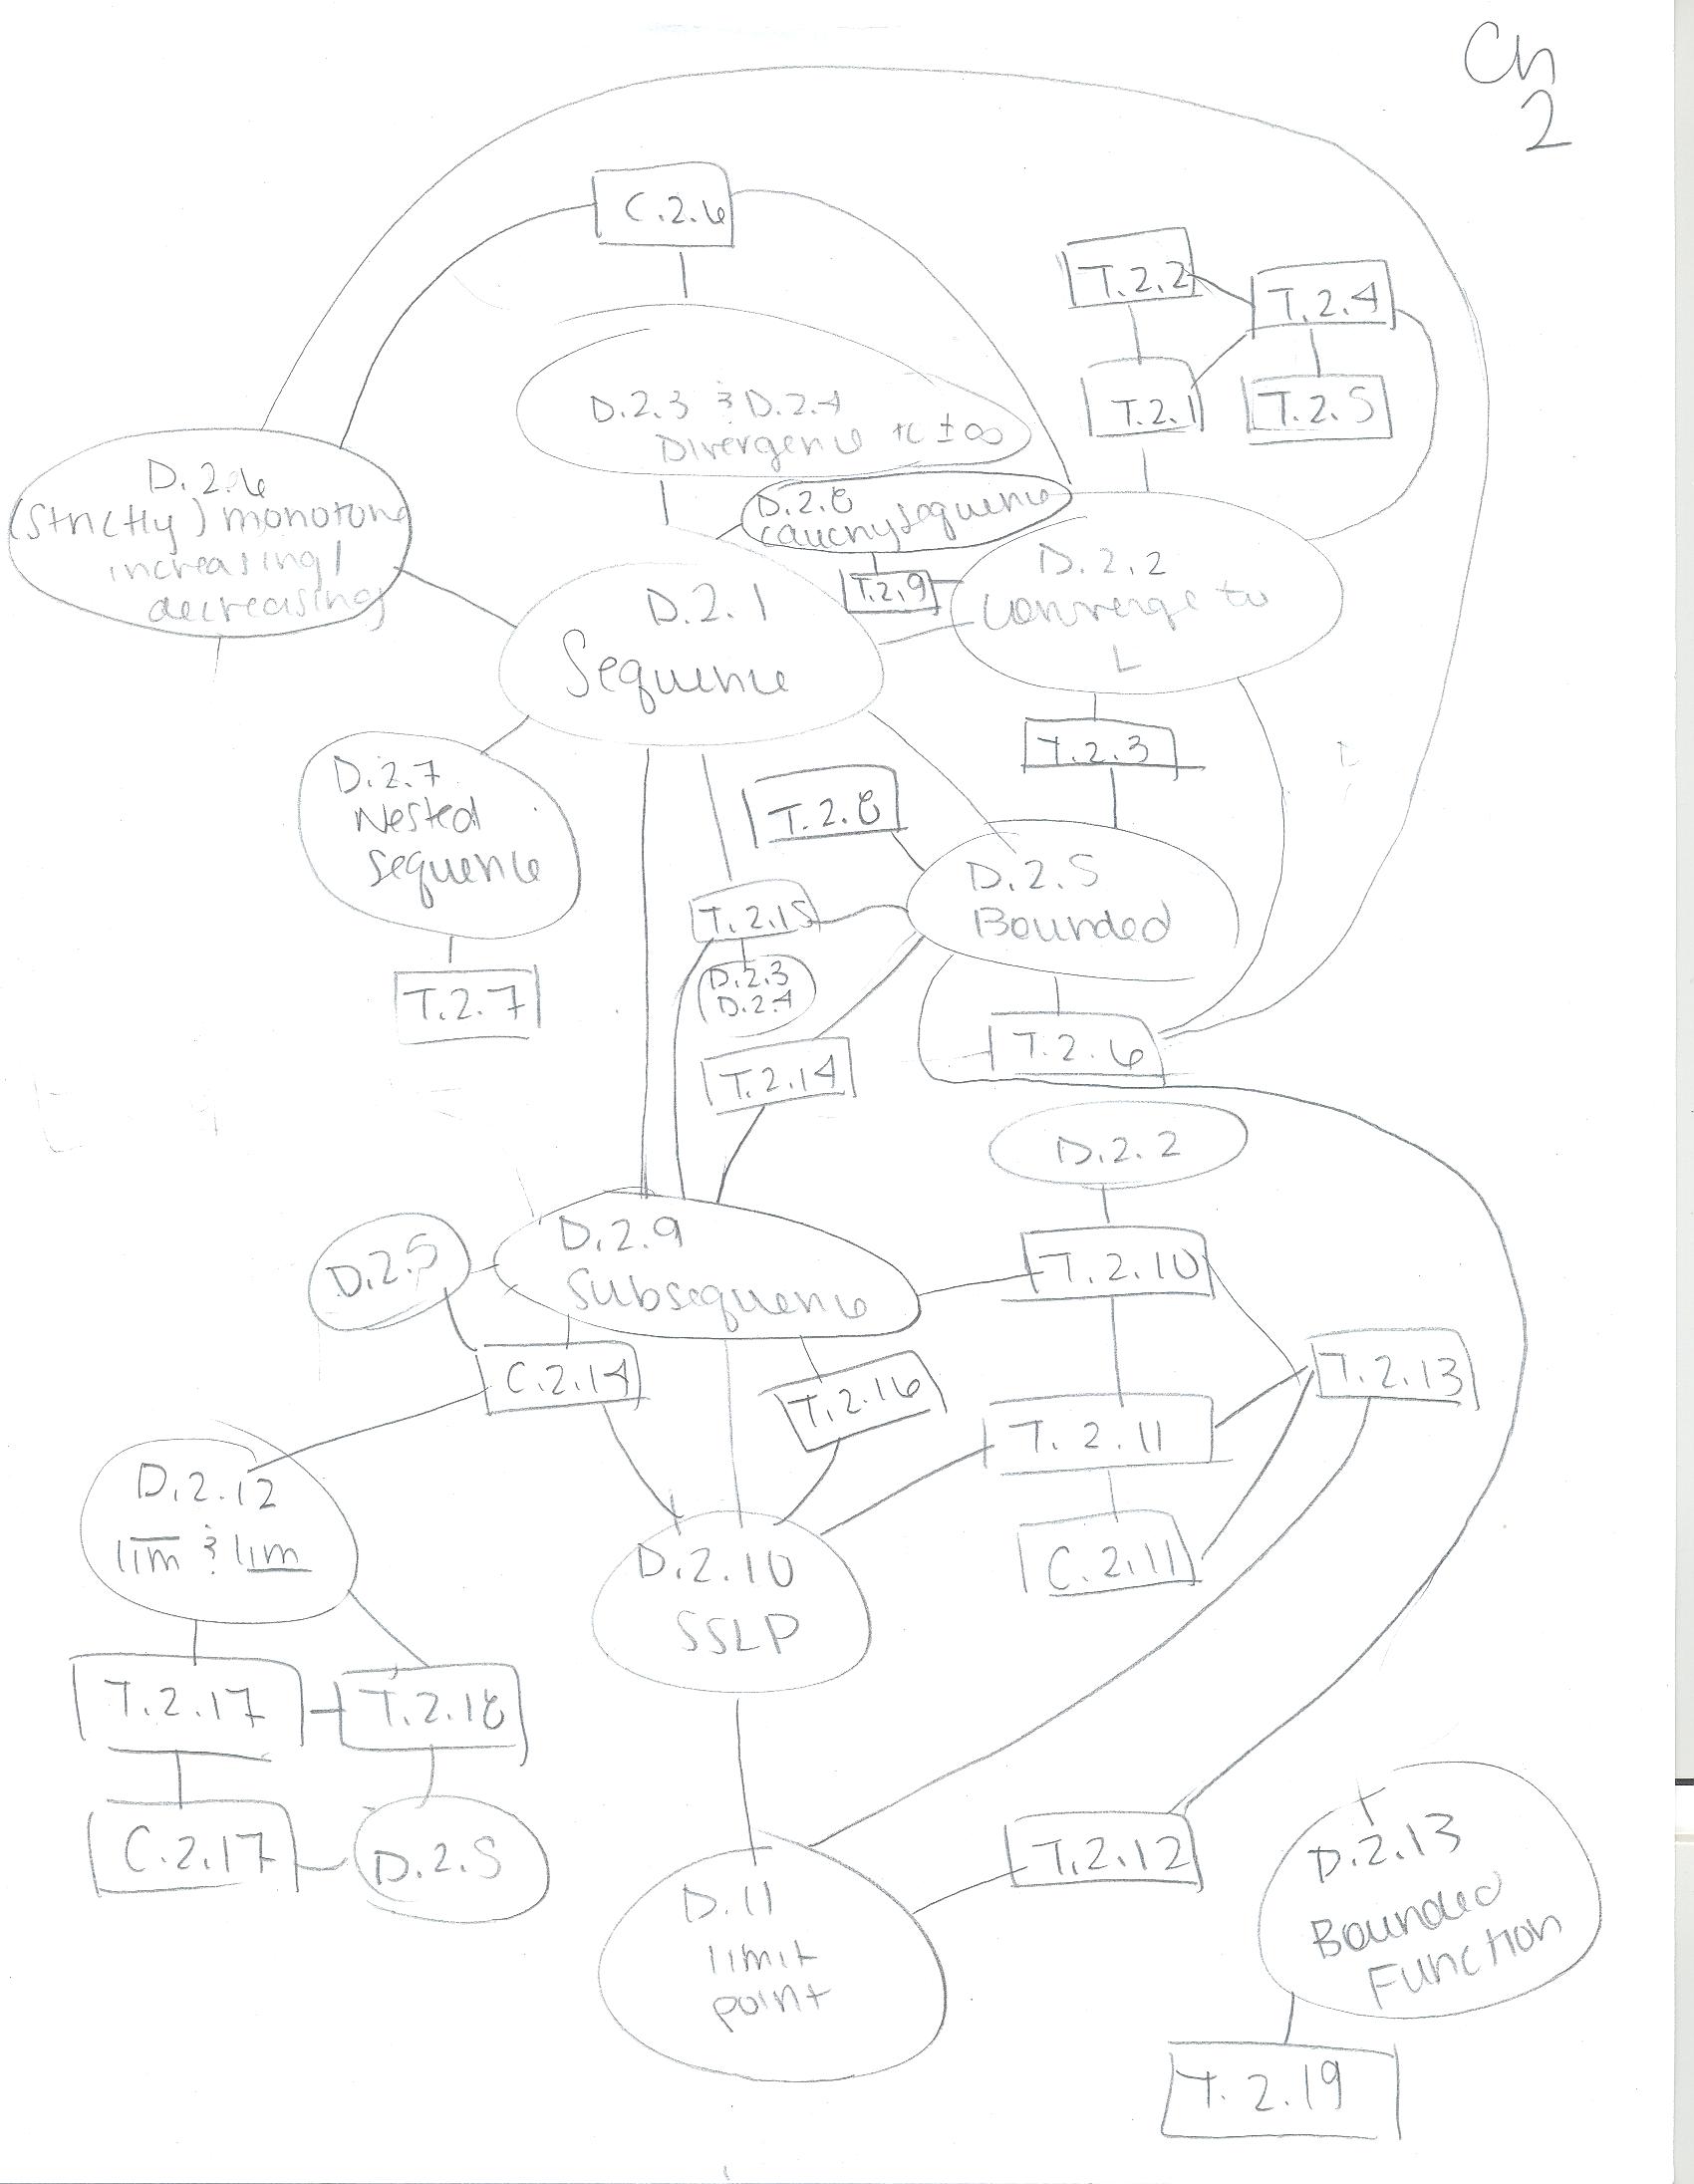 Ch
2
C.2.6
T.2.2
T.2.4
T.2.1
T.2.5
D.2.3 & D.2.4
Divergence to ±∞
D.2.6
(strictly) monotone
increasing/
decreasing
D.2.8
cauchy sequence
T.2.9
D.2.2
converge to
L
D.2.1
Sequence
T.2.3
D.2.7
Nested
sequence
T.2.8
D.2.5
Bounded
T.2.15
D.2.3
D.2.4
T.2.7
T.2.6
T.2.14
D.2.2
D.2.9
Subsequence
D.2.5
T.2.10
C.2.14
T.2.16
T.2.13
T.2.11
D.2.12
lim & lim
D.2.10
SSLP
C.2.11
T.2.17
T.2.18
C.2.17
D.2.5
D.11
limit
point
T.2.12
D.2.13
Bounded
Function
T.2.19